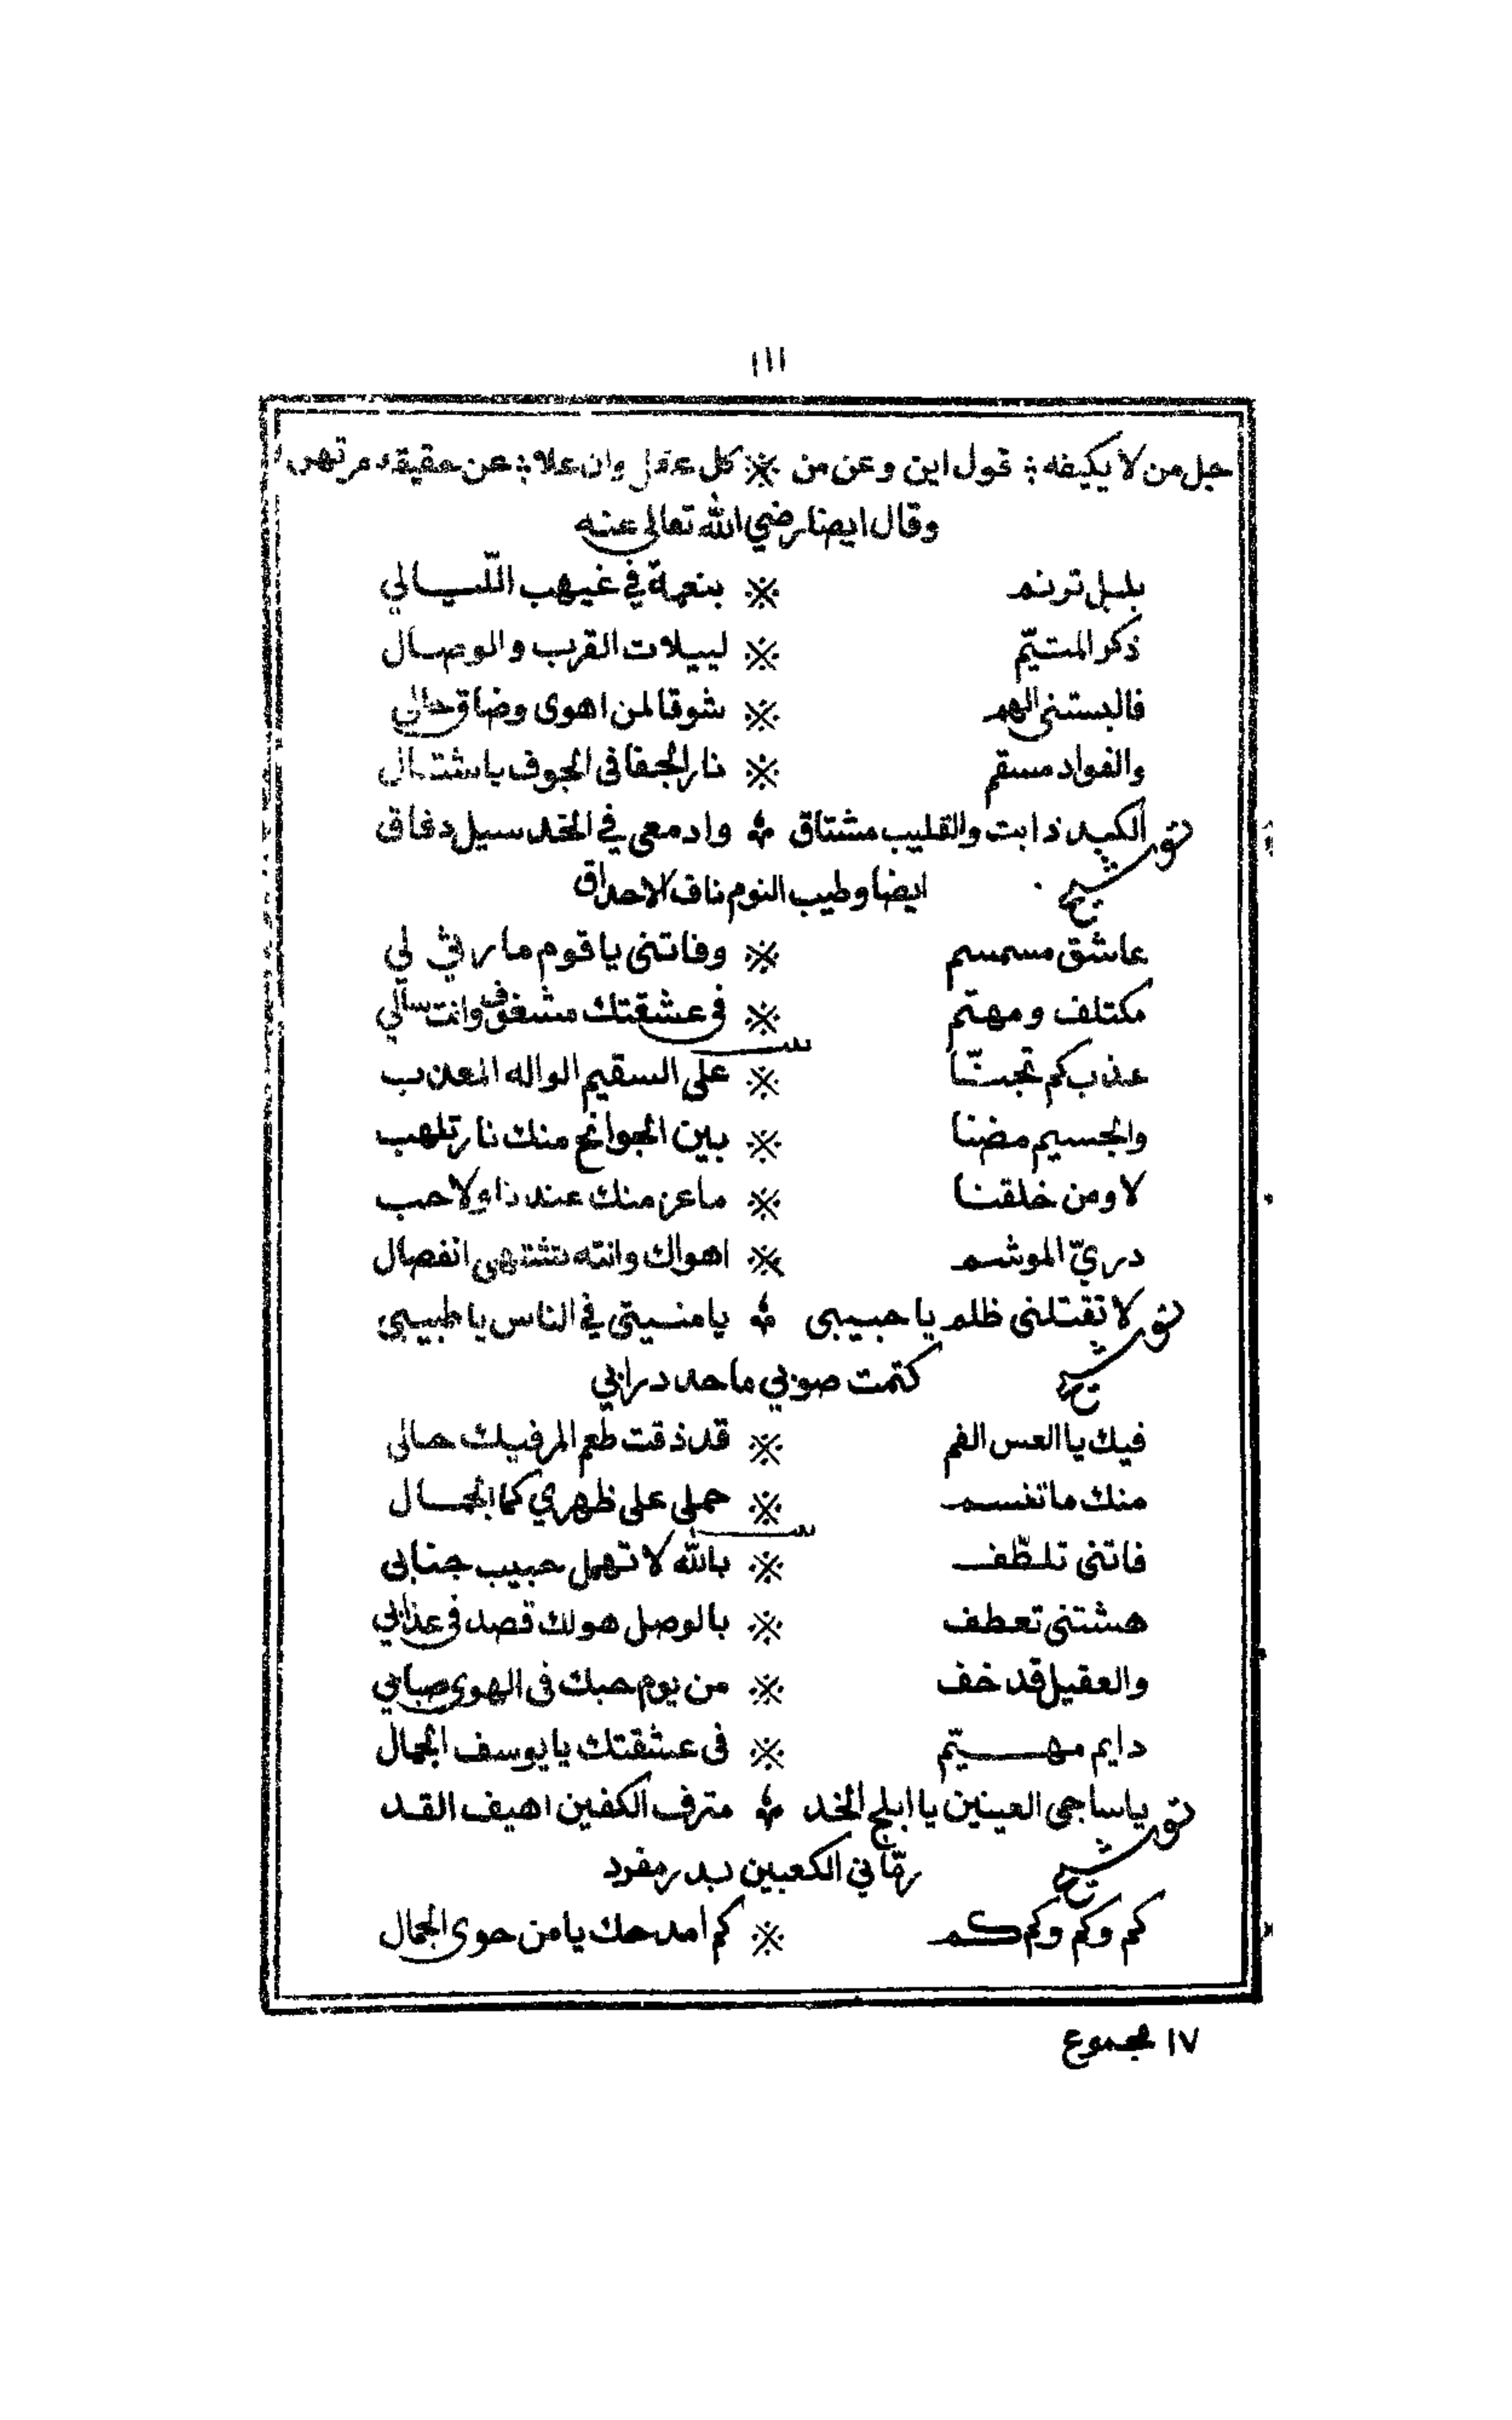 ١١١
جل من لا يكيفه ؛ قول اين وعن من ※ كل عقل وان علا ؛ عن حقيقه مرتهن
وقال ايضا رضي الله تعالى عنه
بلبل ترنم ※ بنعمة في غيهب اللّيالي
ذكر المتيّم ※ لييلات القرب والوصال
فالبستني الهم ※ شوقا لمن اهوى وضاق حالي
والفواد مسقم ※ نار الجفا فى الجوف باشتال
توشيح الكبد ذابت والقليب مشتاق ؞ وادمعي في الخد سيل دفاق
ايضا وطيب النوم ناف الاحداق
عاشق مسمسم ※ وفاتني يا قوم مارثي لي
مكتلف ومهتم ※ فى عشقتك مشغوف وانت سالي
بيت
عذب كم تجنّا ※ على السقيم الواله المعذب
والجسيم مضنا ※ بين الجوانح منك نار تلهب
لا ومن خلقنا ※ ما عز منك عند ذا ولا حب
دريّ الموشم ※ اهواك وانته تشتهى انفصال
توشيح لا تقتلني ظلم يا حبيبى ؞ يا منيتى في الناس يا طبيبى
كتمت صوبي ما حد درابي
فيك يا العس الفم ※ قد ذقت طعم المر فيك حالى
منك ما تغسم ※ حملي على ظهري كما الجمال
بيت
فاتني تلطّف ※ بالله لا تهمل حبيب جنابى
هشتني تعطف ※ بالوصل هو لك قصد فى عذابي
والعقيل قد خف ※ من يوم حبك فى الهوى صبابي
دايم مهيّم ※ فى عشقتك يا يوسف الجمال
توشيح يا ساجى العينين يا ابلج الخد ؞ مترف الكفين اهيف القد
رمّاني الكعبين بدر مفرد
كم وكم وكم كم ※ كم امدحك يا من حوى الجمال
١٧ مجموع